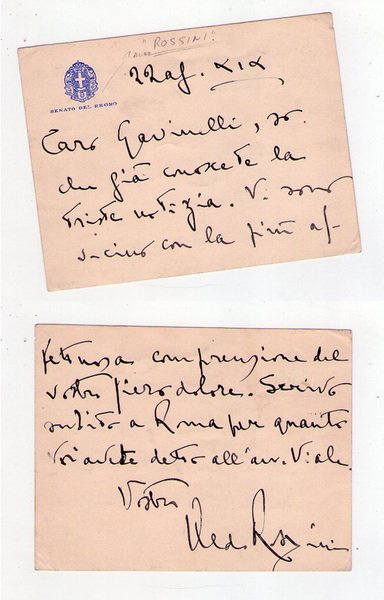 "ROSSINI"
(ALDO
22 ag. XIX
SENATO DEL REGNO
Caro Gavinelli, so
che già conoscete la
triste notizia. Vi sono
vicino con la più af-
fettuosa comprensione del
vostro fiero dolore. Scrivo
subito a Roma per quanto
voi avete detto all'avv. Viale.
Vostro
Aldo Rossini